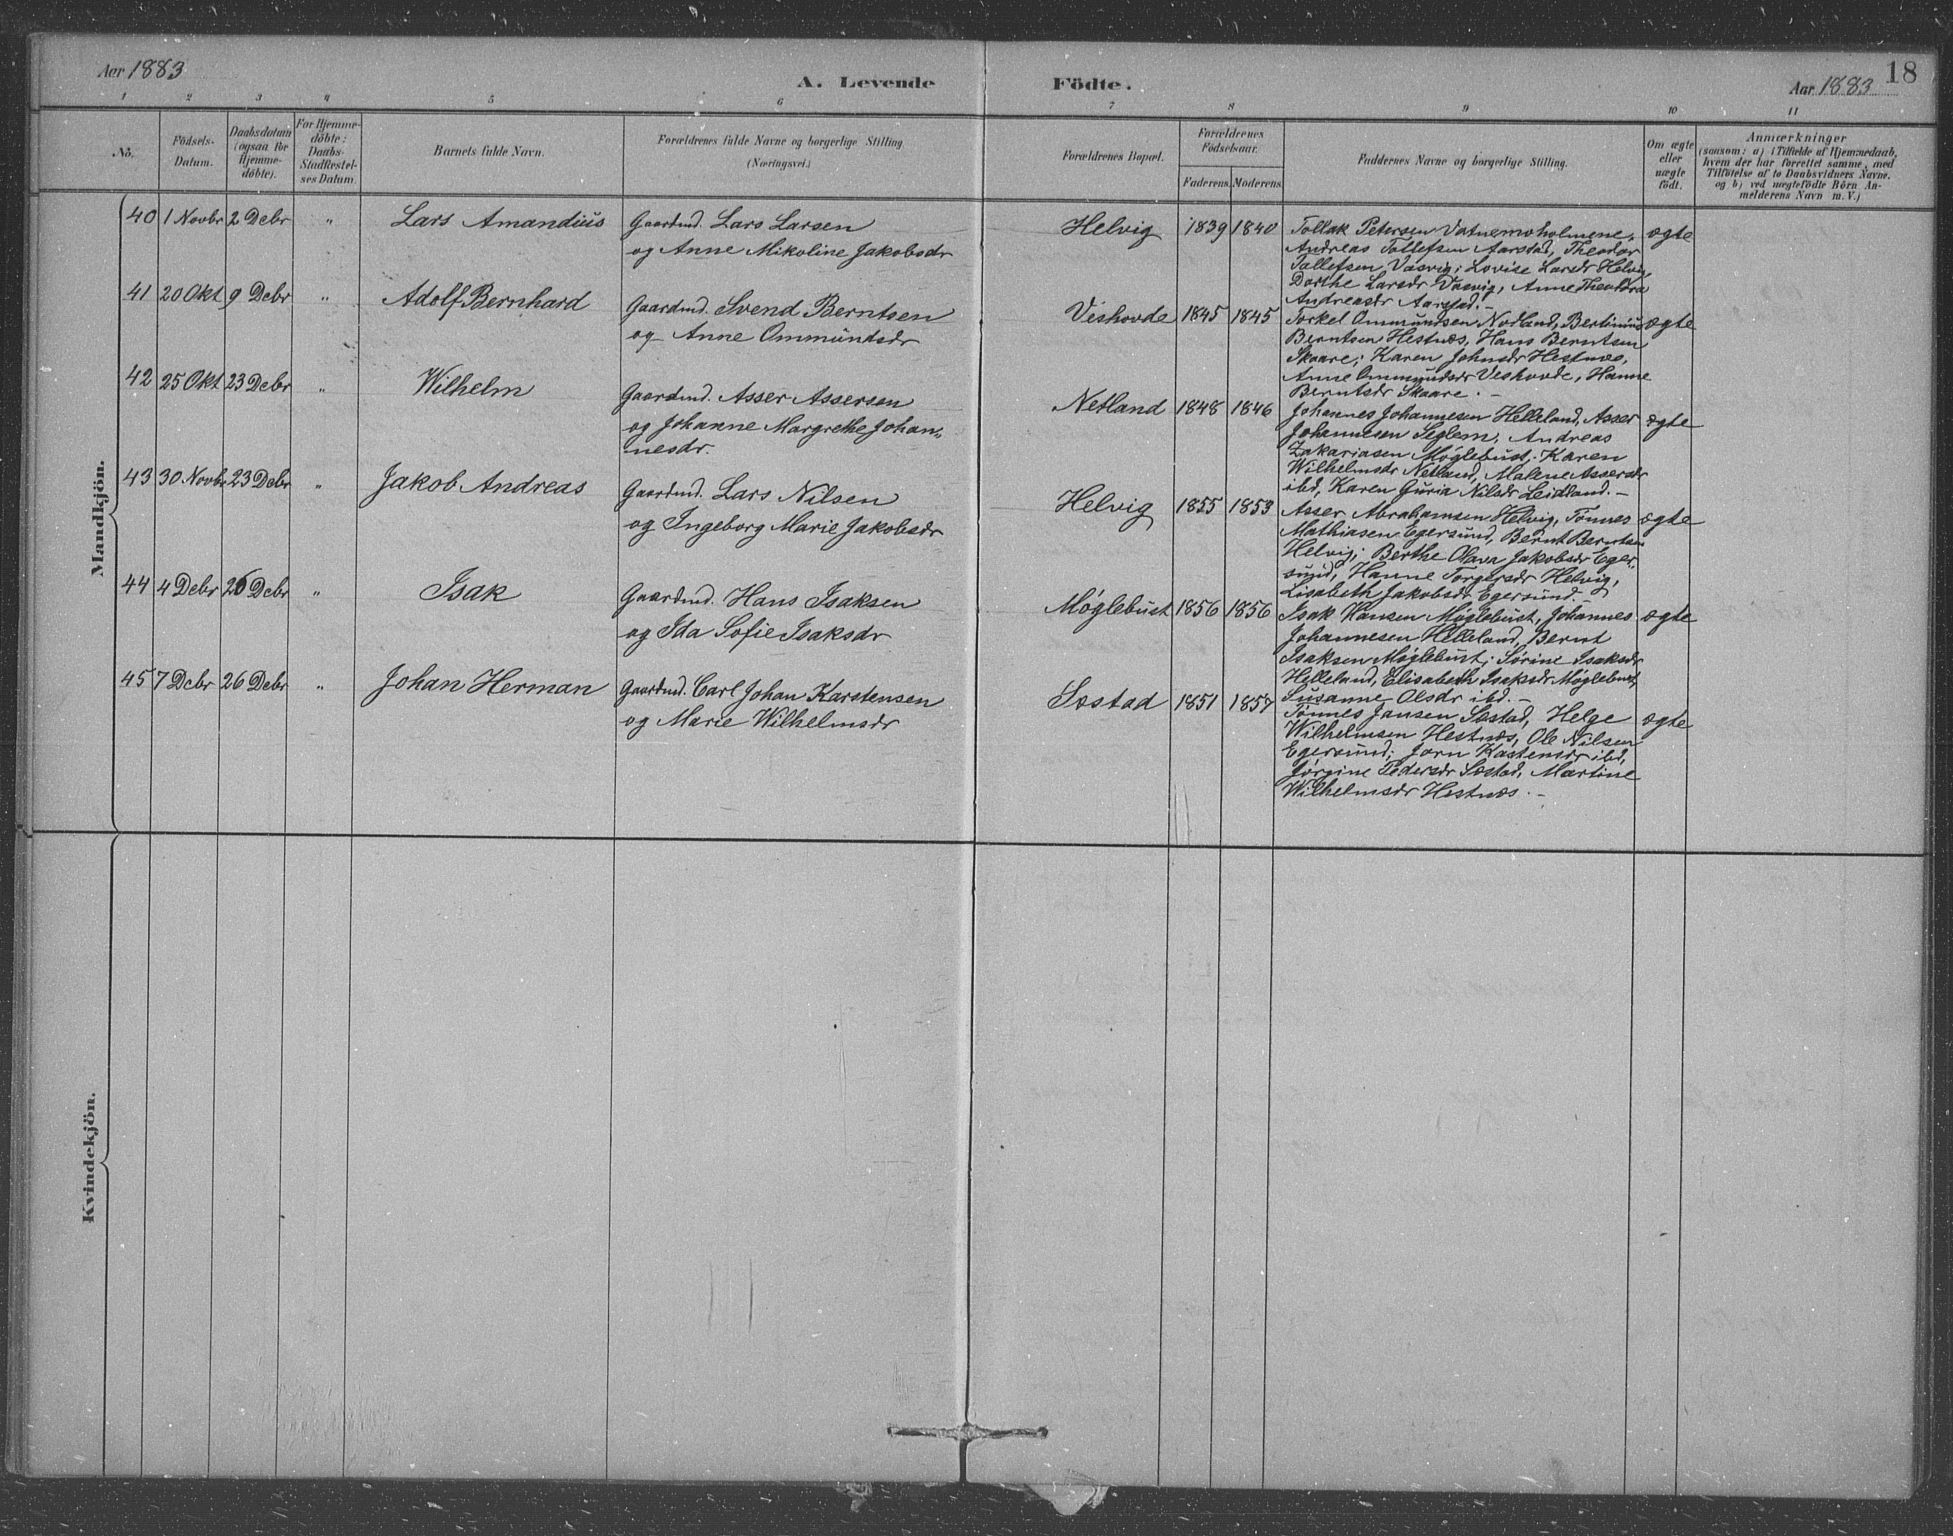 Aar 1883
A. Levende Födte.
Aar 1883
18
1 2 3 4 5 6 7 8 9 10 11
No.
Födsels-
Datum.
Daabsdatum
(ogsaa for
Hjemme-
döbte).
For Hjemme-
döbte:
Daabs-
Stadfæstel-
ses Datum.
Barnets fulde Navn.
Forældrenes fulde Navne og borgerlige Stilling
(Næringsvei.)
Forældrenes Bopæl.
Forældrenes
Födselsaar.
Faderens. Moderens.
Faddernes Navne og borgerlige Stilling.
Om ægte
eller
uægte
födt.
Anmærkninger
(saasom: a) i Tilfælde af Hjemmedaab,
hvem der har forrettet samme, med
Tilföielse af to Daabsvidners Navne.
og b) ved uægtefödte Börn An-
melderens Navn m. V.)
Mandkjön.
40 1 Novbr 2 Debr " Lars Amandius
Gaardmd. Lars Larsen
og Anne Mikoline Jakobsdr
Helvig 1839 1840
Tollak Petersen Vatnemoholmene,
Andreas Tollefsen Aarstad, Theodor
Tollefsen Vasvig; Lovise Larsdr Helvig,
Dorthe Larsdr Vasvig, Anne Theodora
Andreasdr Aarstad. –
ægte
41 20 Okt 9 Debr " Adolf Bernhard
Gaardmd. Svend Berntsen
og Anne Ommundsdr
Veshovde 1845 1845
Torkel Ommundsen Nodland, Bertinius
Berntsen Hestnæs, Hans Berntsen
Skaare; Karen Johnsdr Hestnæs,
Anne Ommundsdr Veshovde, Hanne
Berntsdr Skaare. –
ægte
42 25 Okt 23 Debr " Wilhelm
Gaardmd. Asser Assersen
og Johanne Margrethe Johan-
nesdr.
Netland 1848 1846
Johannes Johannesen Helleland, Asser
Johannesen Seglem, Andreas
Zakariasen Møglebust; Karen
Wilhelmsdr Netland, Malene Assersdr
ibd, Karen Guria Nilsdr Leidland. –
ægte
43 30 Novbr 23 Debr " Jakob Andreas
Gaardmd. Lars Nilsen
og Ingeborg Marie Jakobsdr
Helvig 1855 1853
Asser Abrahamsen Helvig, Tønnes
Mathiasen Egersund, Bernt Berntsen
Helvig; Berthe Olava Jakobsdr Eger-
sund, Hanne Torgersdr Helvig,
Lisabeth Jakobsdr Egersund. –
ægte
44 4 Debr 26 Debr " Isak
Gaardmd. Hans Isaksen
og Ida Sofie Isaksdr
Møglebust 1856 1856
Isak Hansen Møglebust, Johannes
Johannesen Helleland, Bernt
Isaksen Møglebust; Sørine Isaksdr
Helleland, Elisabeth Isaksdr Møglebust,
Susanne Olsdr ibd. –
ægte
45 7 Debr 26 Debr " Johan Herman
Gaardmd. Carl Johan Karstensen
og Marie Wilhelmsdr
Sæstad 1851 1857
Tønnes Jansen Sæstad, Helge
Wilhelmsen Hestnæs, Ole Nilsen
Egersund; Jorn Kastensdr ibd,
Jørgine Pedersdr Sæstad, Martine
Wilhelmsdr Hestnæs. –
ægte
Kvindekjön.